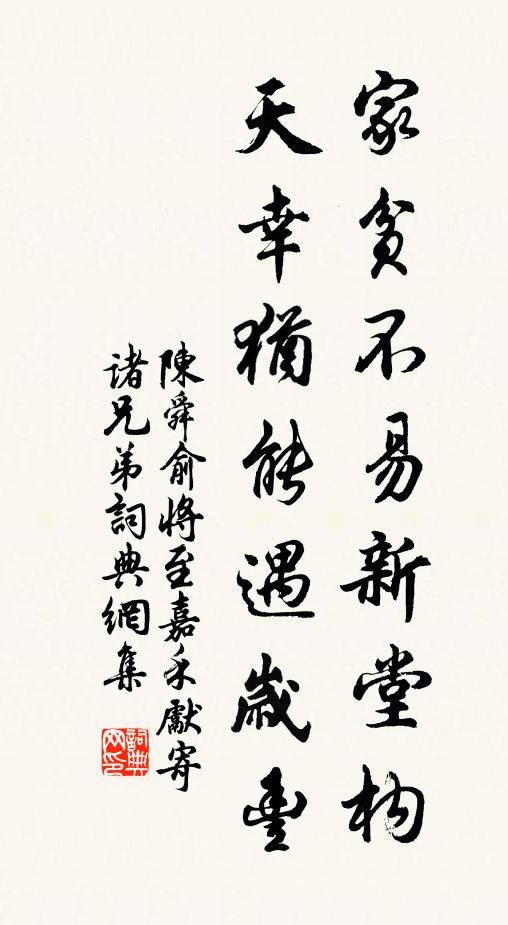 家貧不易新堂構
天幸猶能遇歲豐
陳舜俞將至嘉禾獻寄
諸兄弟詞典網集
詞典
网印